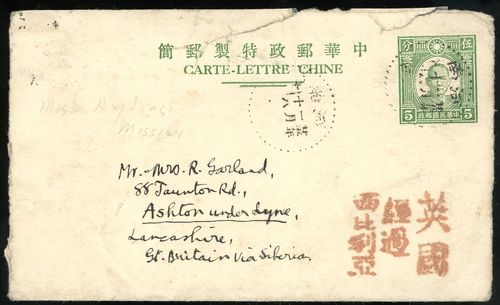 簡郵製特政郵華中
CARTE-LETTRE CHINE
分 伍
5 5
政郵國民華中
Miss
Mission
Mr. & Mrs. R. Garland,
88 Taunton Rd.,
Ashton under Lyne,
Lancashire,
Gt. Britain via Siberia
英國
經過
西比利亞